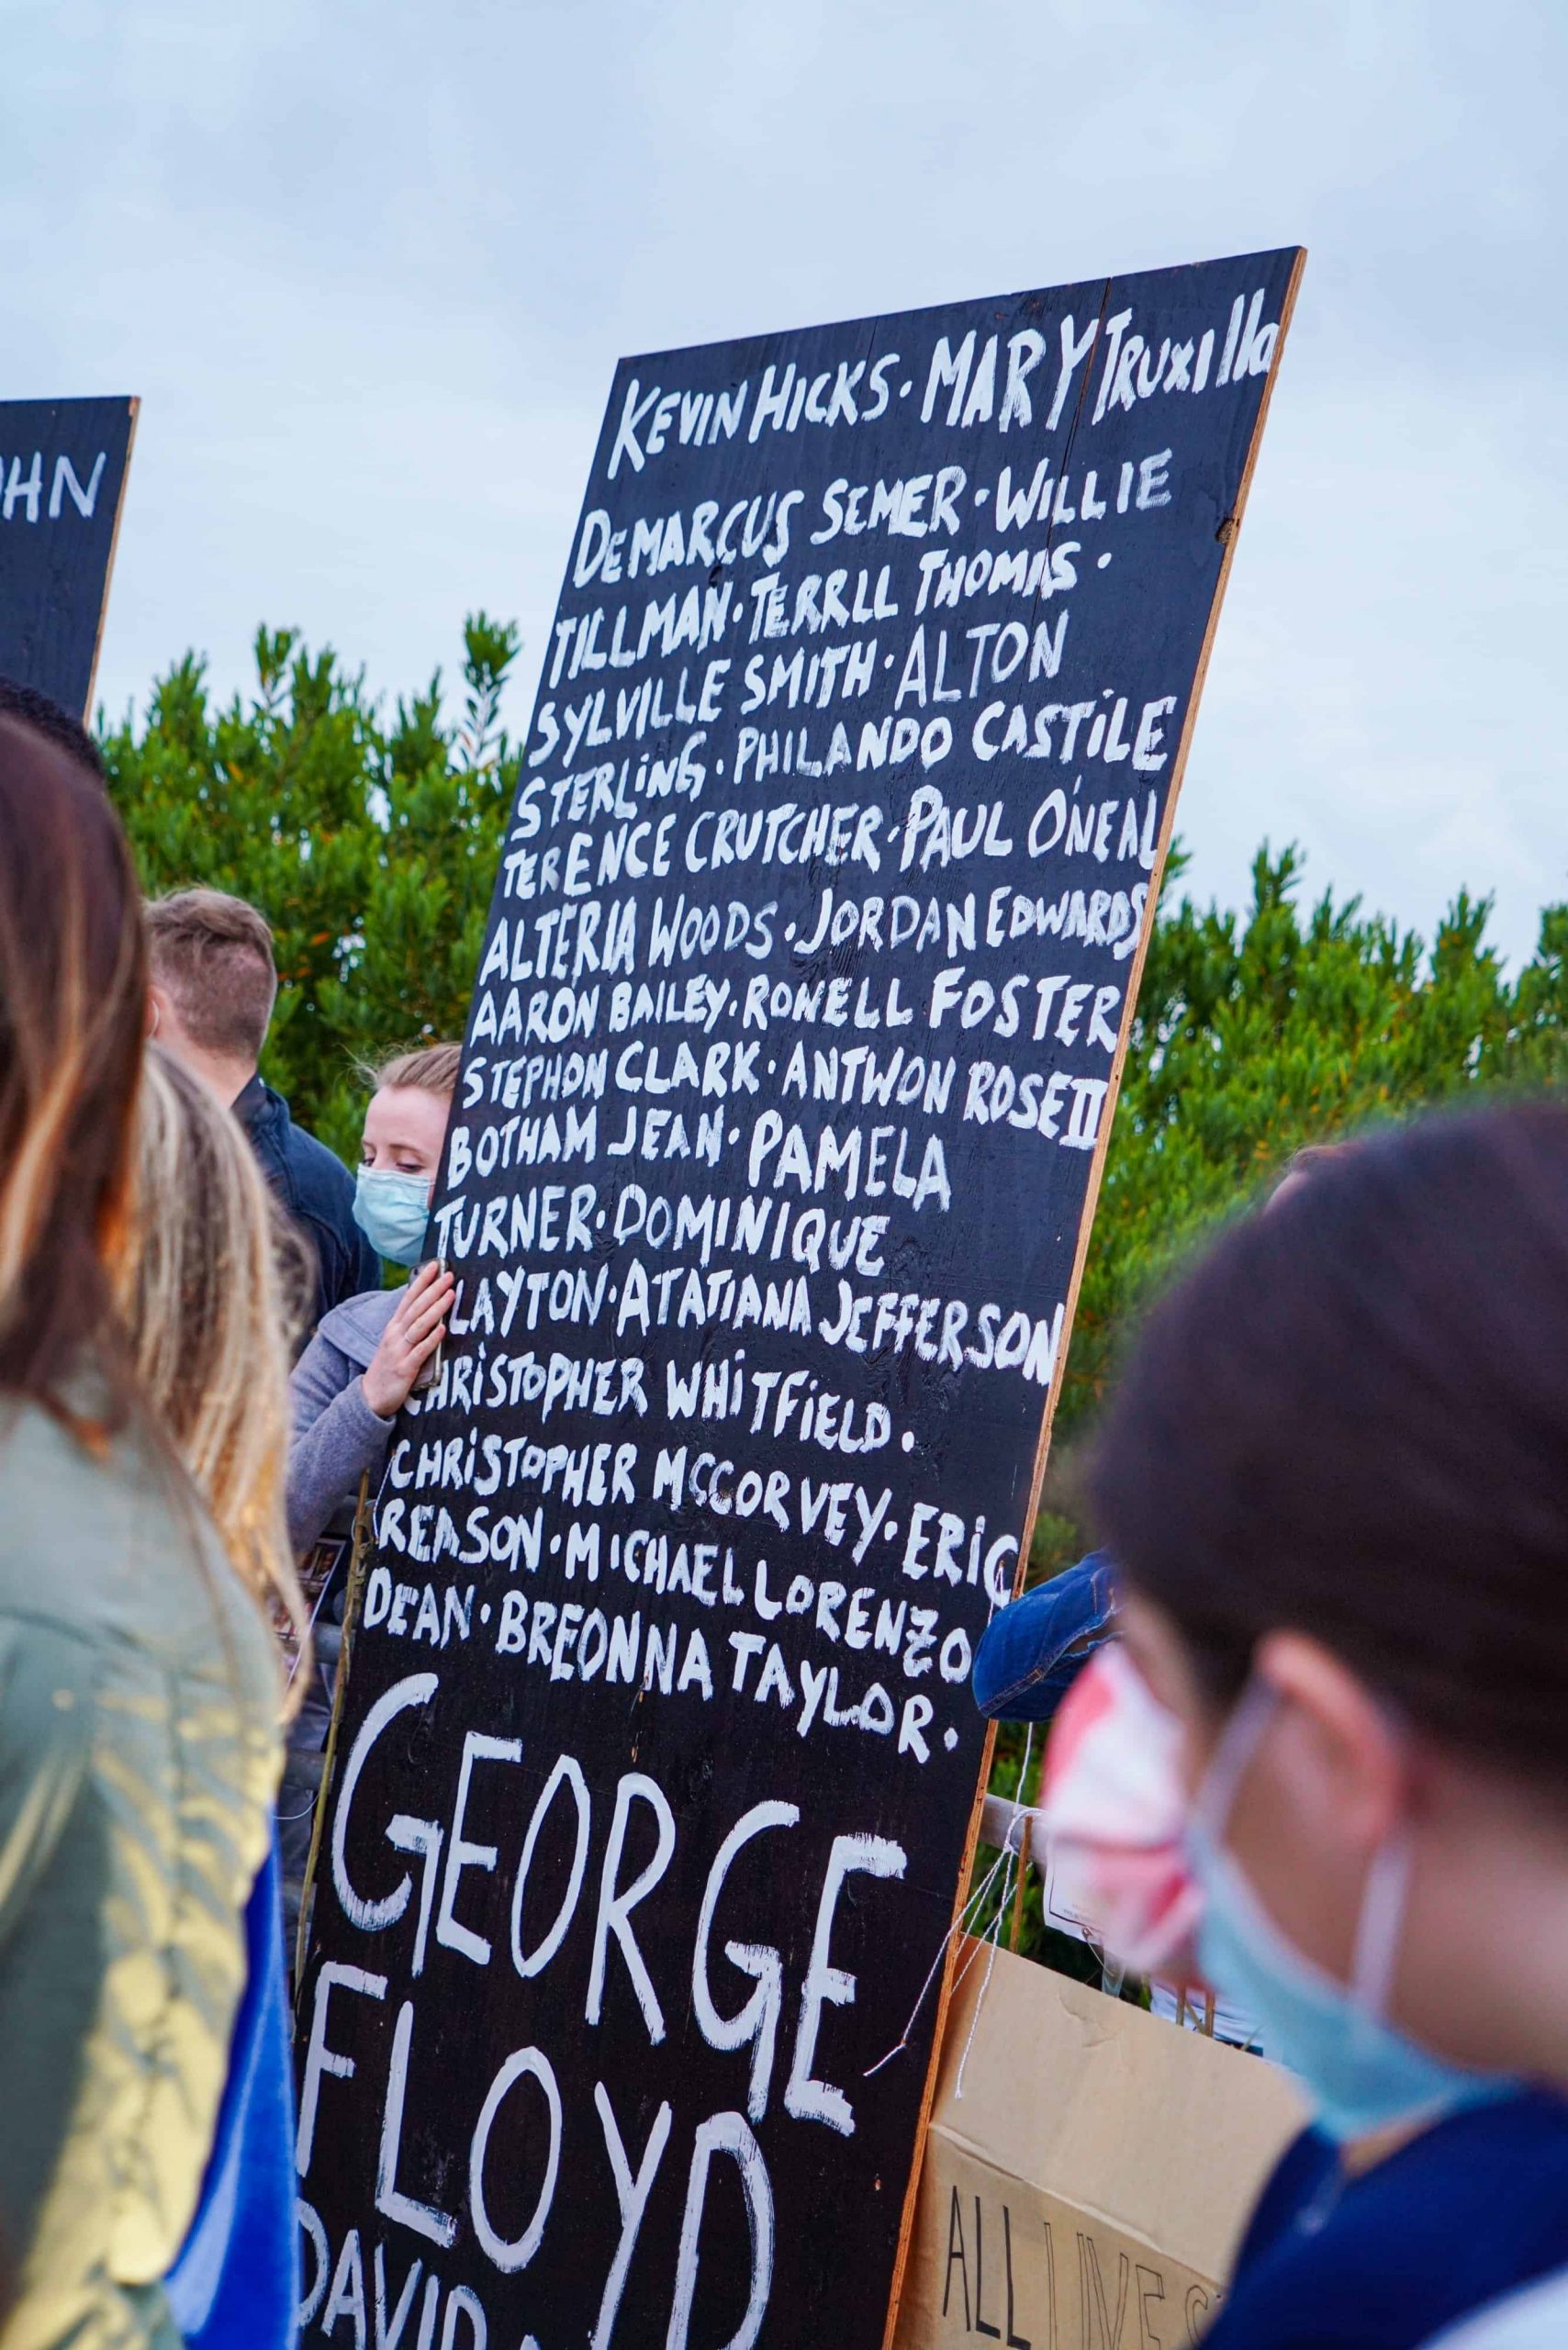 HN
KEVIN HICKS · MARY TRUXIllO
DEMARCUS SEMER · WILLIE
TILLMAN · TERRLL THOMAS ·
SYLVILLE SMITH · ALTON
STERLiNG · PHILANDO CASTiLE
TERENCE CRUTCHER · PAUL O'NEAL
ALTERIA WOODS · JORDAN EDWARDS
AARON BAILEY · RONELL FOSTER
STEPHON CLARK · ANTWON ROSE II
BOTHAM JEAN · PAMELA
TURNER · DOMINIQUE
LAYTON · ATATIANA JEFFERSON
CHRiSTOPHER WHiTFiELD ·
CHRiSTOPHER MCCORVEY · ERiC
REASON · MICHAEL LORENZO
DEAN · BREONNA TAYLOR ·
GEORGE
FLOYD
DAVID
ALL LIVES